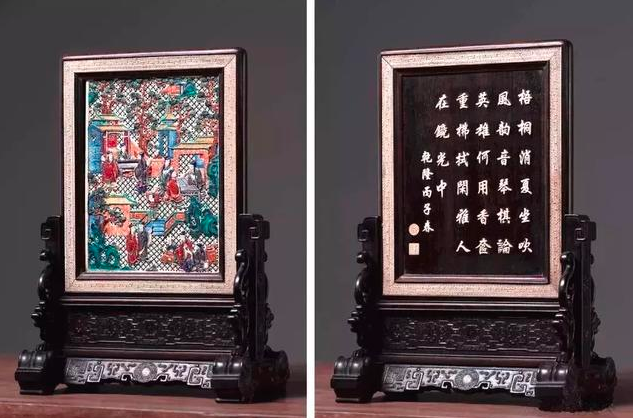 梧桐消夏坐吹
風韵音琴棋論
英雄何用香奩
重拂拭閑雅人
在鏡光中
乾隆丙子春